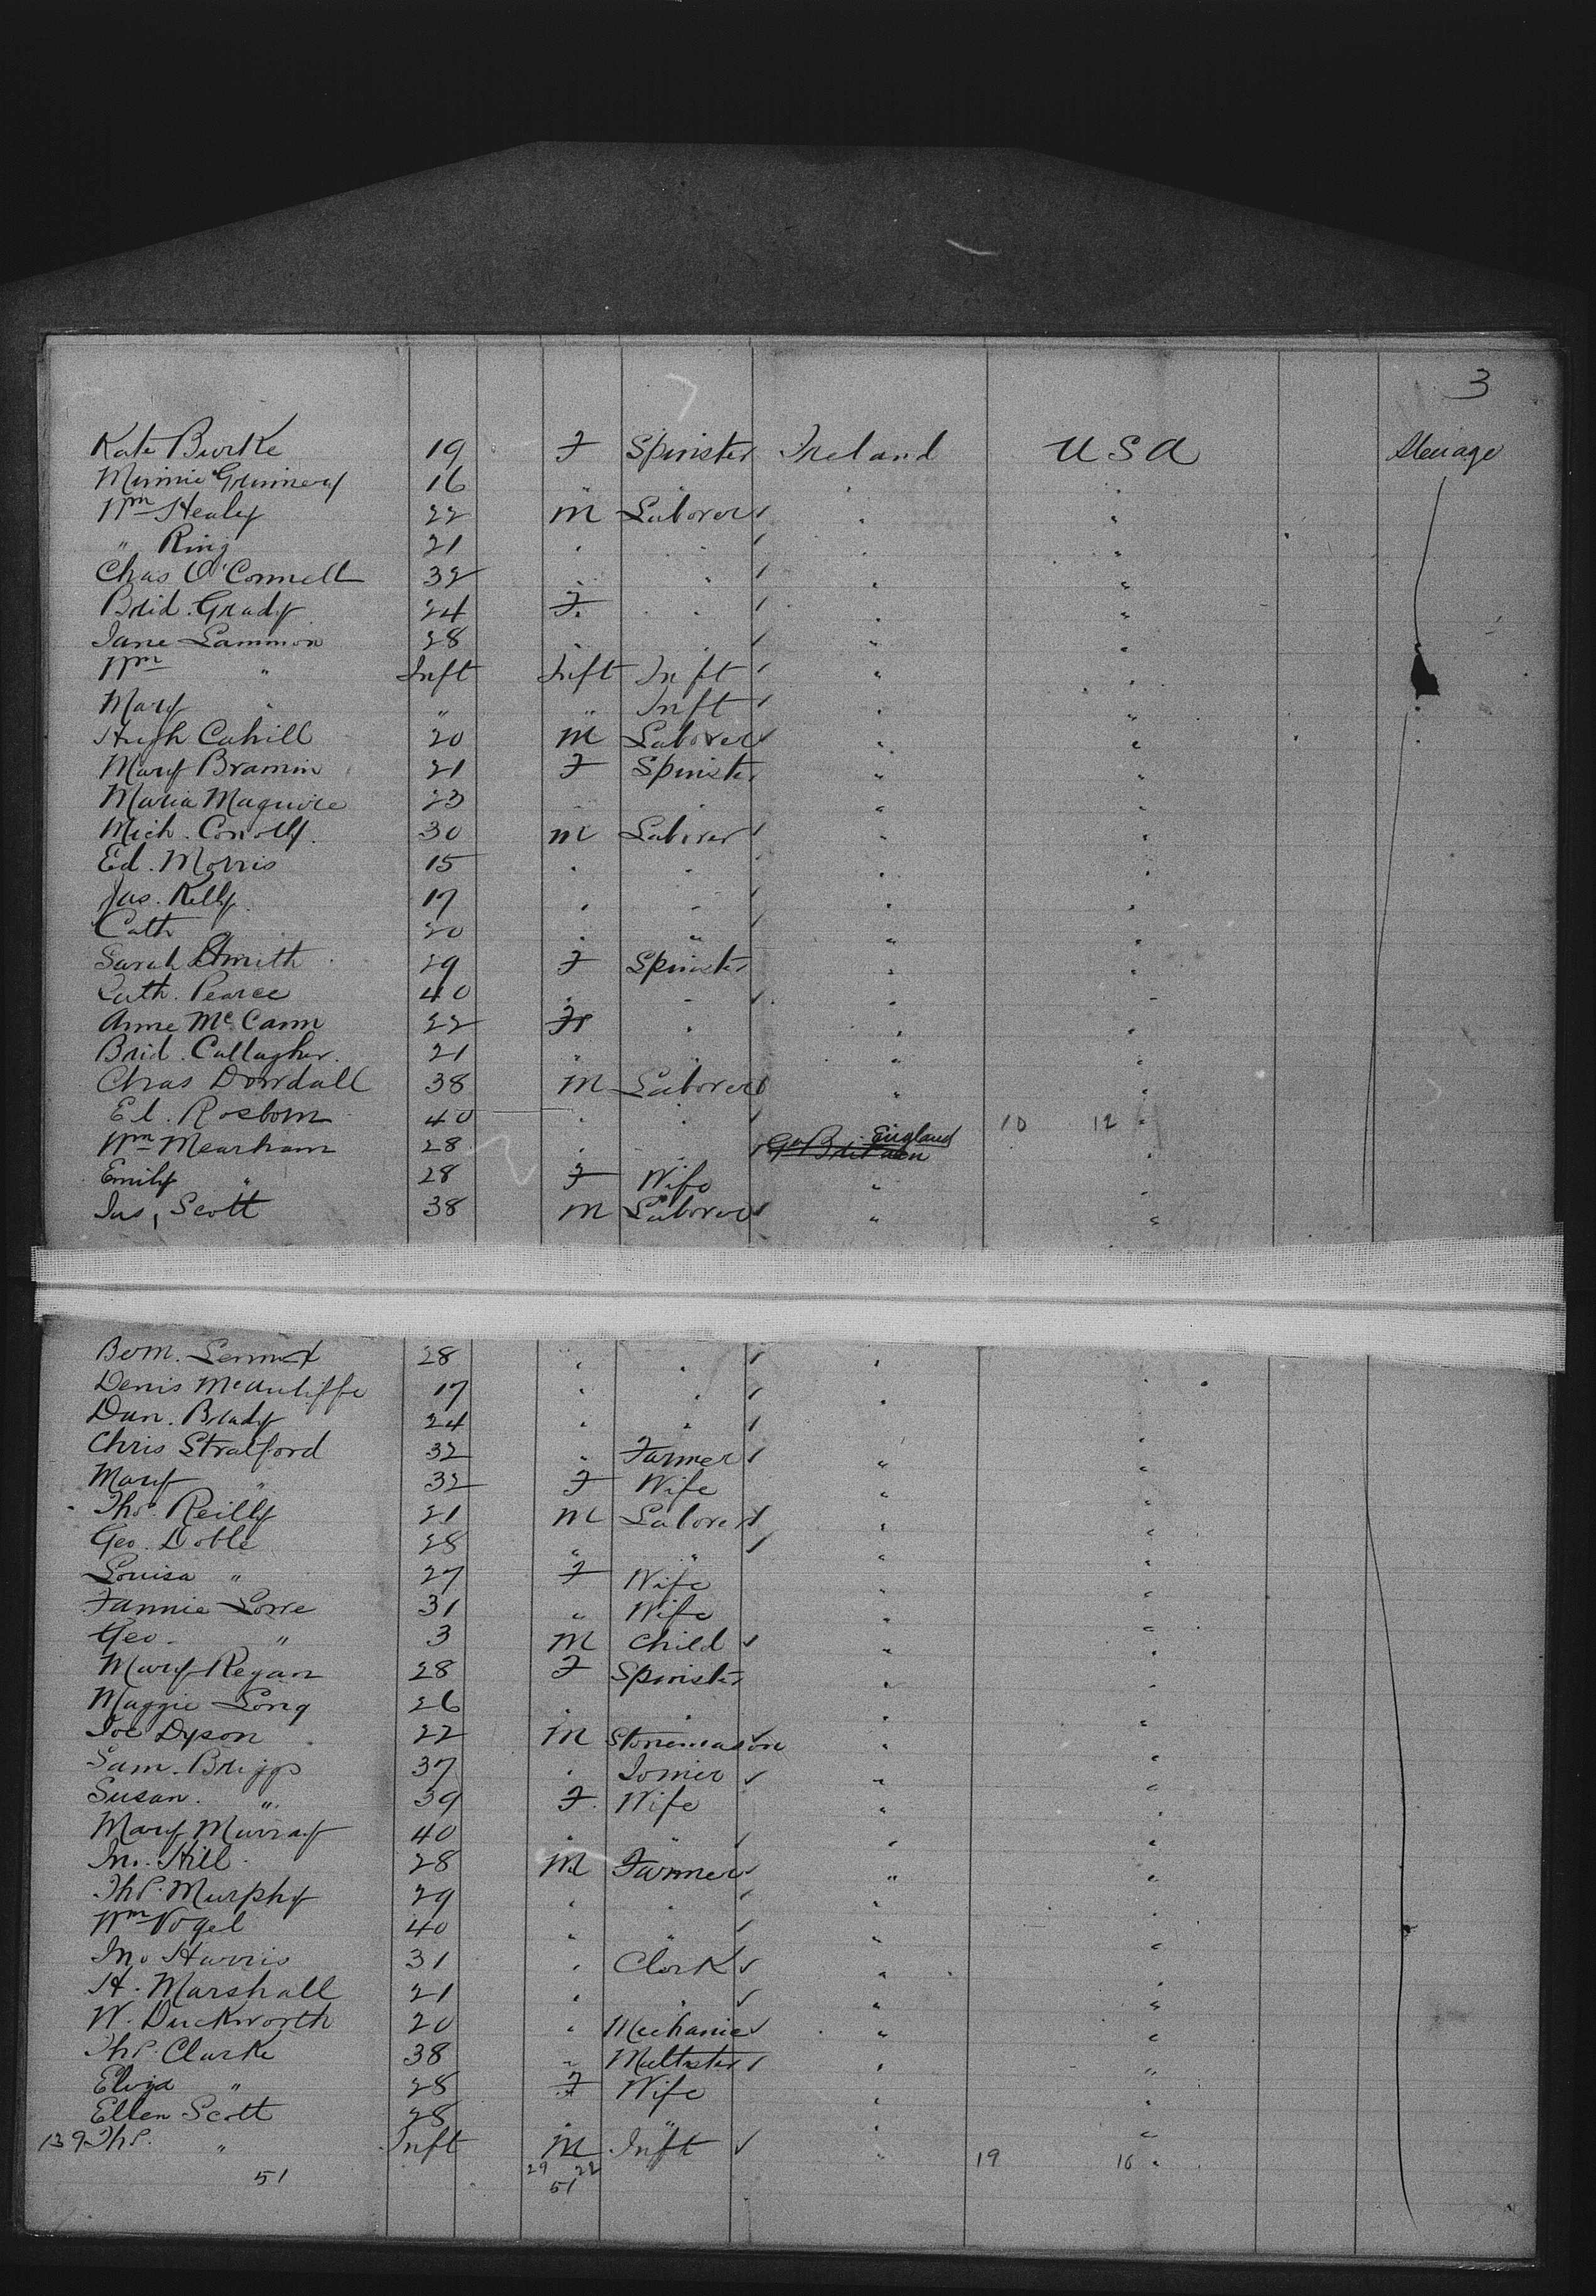 3
Kate Burke 19 F Spinster Ireland USA Steerage
Minnie 16 " " " "
Wm Healey 22 M Laborer " "
" Ring 21 " " " "
Chas O'Connell 32 " " " "
Brid. Grady 24 F. " " "
Jane Lammon 28 " " " "
Wm " Inft Inft Inft " "
Mary " " " Inft " "
Hugh Cahill 20 M Laborer " "
Mary Brannin 21 F Spinster " "
Maria Maguire 23 " " " "
Mich. Conolly 30 M Laborer " "
Ed. Morris 15 " " " "
Jas. Kelly 17 " " " "
Cath " 20 " " " "
Sarah Smith 29 F Spinster " "
Cath. Pearce 40 " " " "
Anne McCann 22 F " " "
Brid. Callagher 21 " " " "
Chas Dowdall 38 M Laborer " "
Ed. 40 " " " 10 12 "
Wm Mearham 28 " " Gt Britain England "
Emily " 28 F Wife " "
Jas, Scott 38 M Laborer " "
28 " " " "
Denis McAuliffe 17 " " " "
Dan. Brady 24 " " "
Chris Stratford 32 " Farmer " "
Mary " 32 F Wife " "
Thos. Reilly 21 M Laborer " "
Geo. Doble 28 " " " "
Louisa " 27 F Wife " "
Fannie Lowe 31 " Wife " "
Geo. " 3 M Child " "
Mary Regan 28 F Spinster " "
Maggie Long 26 " " "
Joe Dyson 22 M Stonemason " "
Sam. Briggs 37 " Joiner " "
Susan. " 39 F. Wife " "
Mary Murray 40 " " " "
Jno. Hill 28 M Farmer " "
Thos. Murphy 29 " " " "
Wm Vogel 40 " " " "
Jno Harris 31 " Clerk " "
H. Marshall 21 " " " "
W. Duckworth 20 " Mechanic " "
Thos. Clarke 38 " Maltster " "
Eliza " 28 F Wife " "
Ellen Scott 28 " " " "
139 Thos. " Inft M Inft " 19 16 "
51 29 22
51